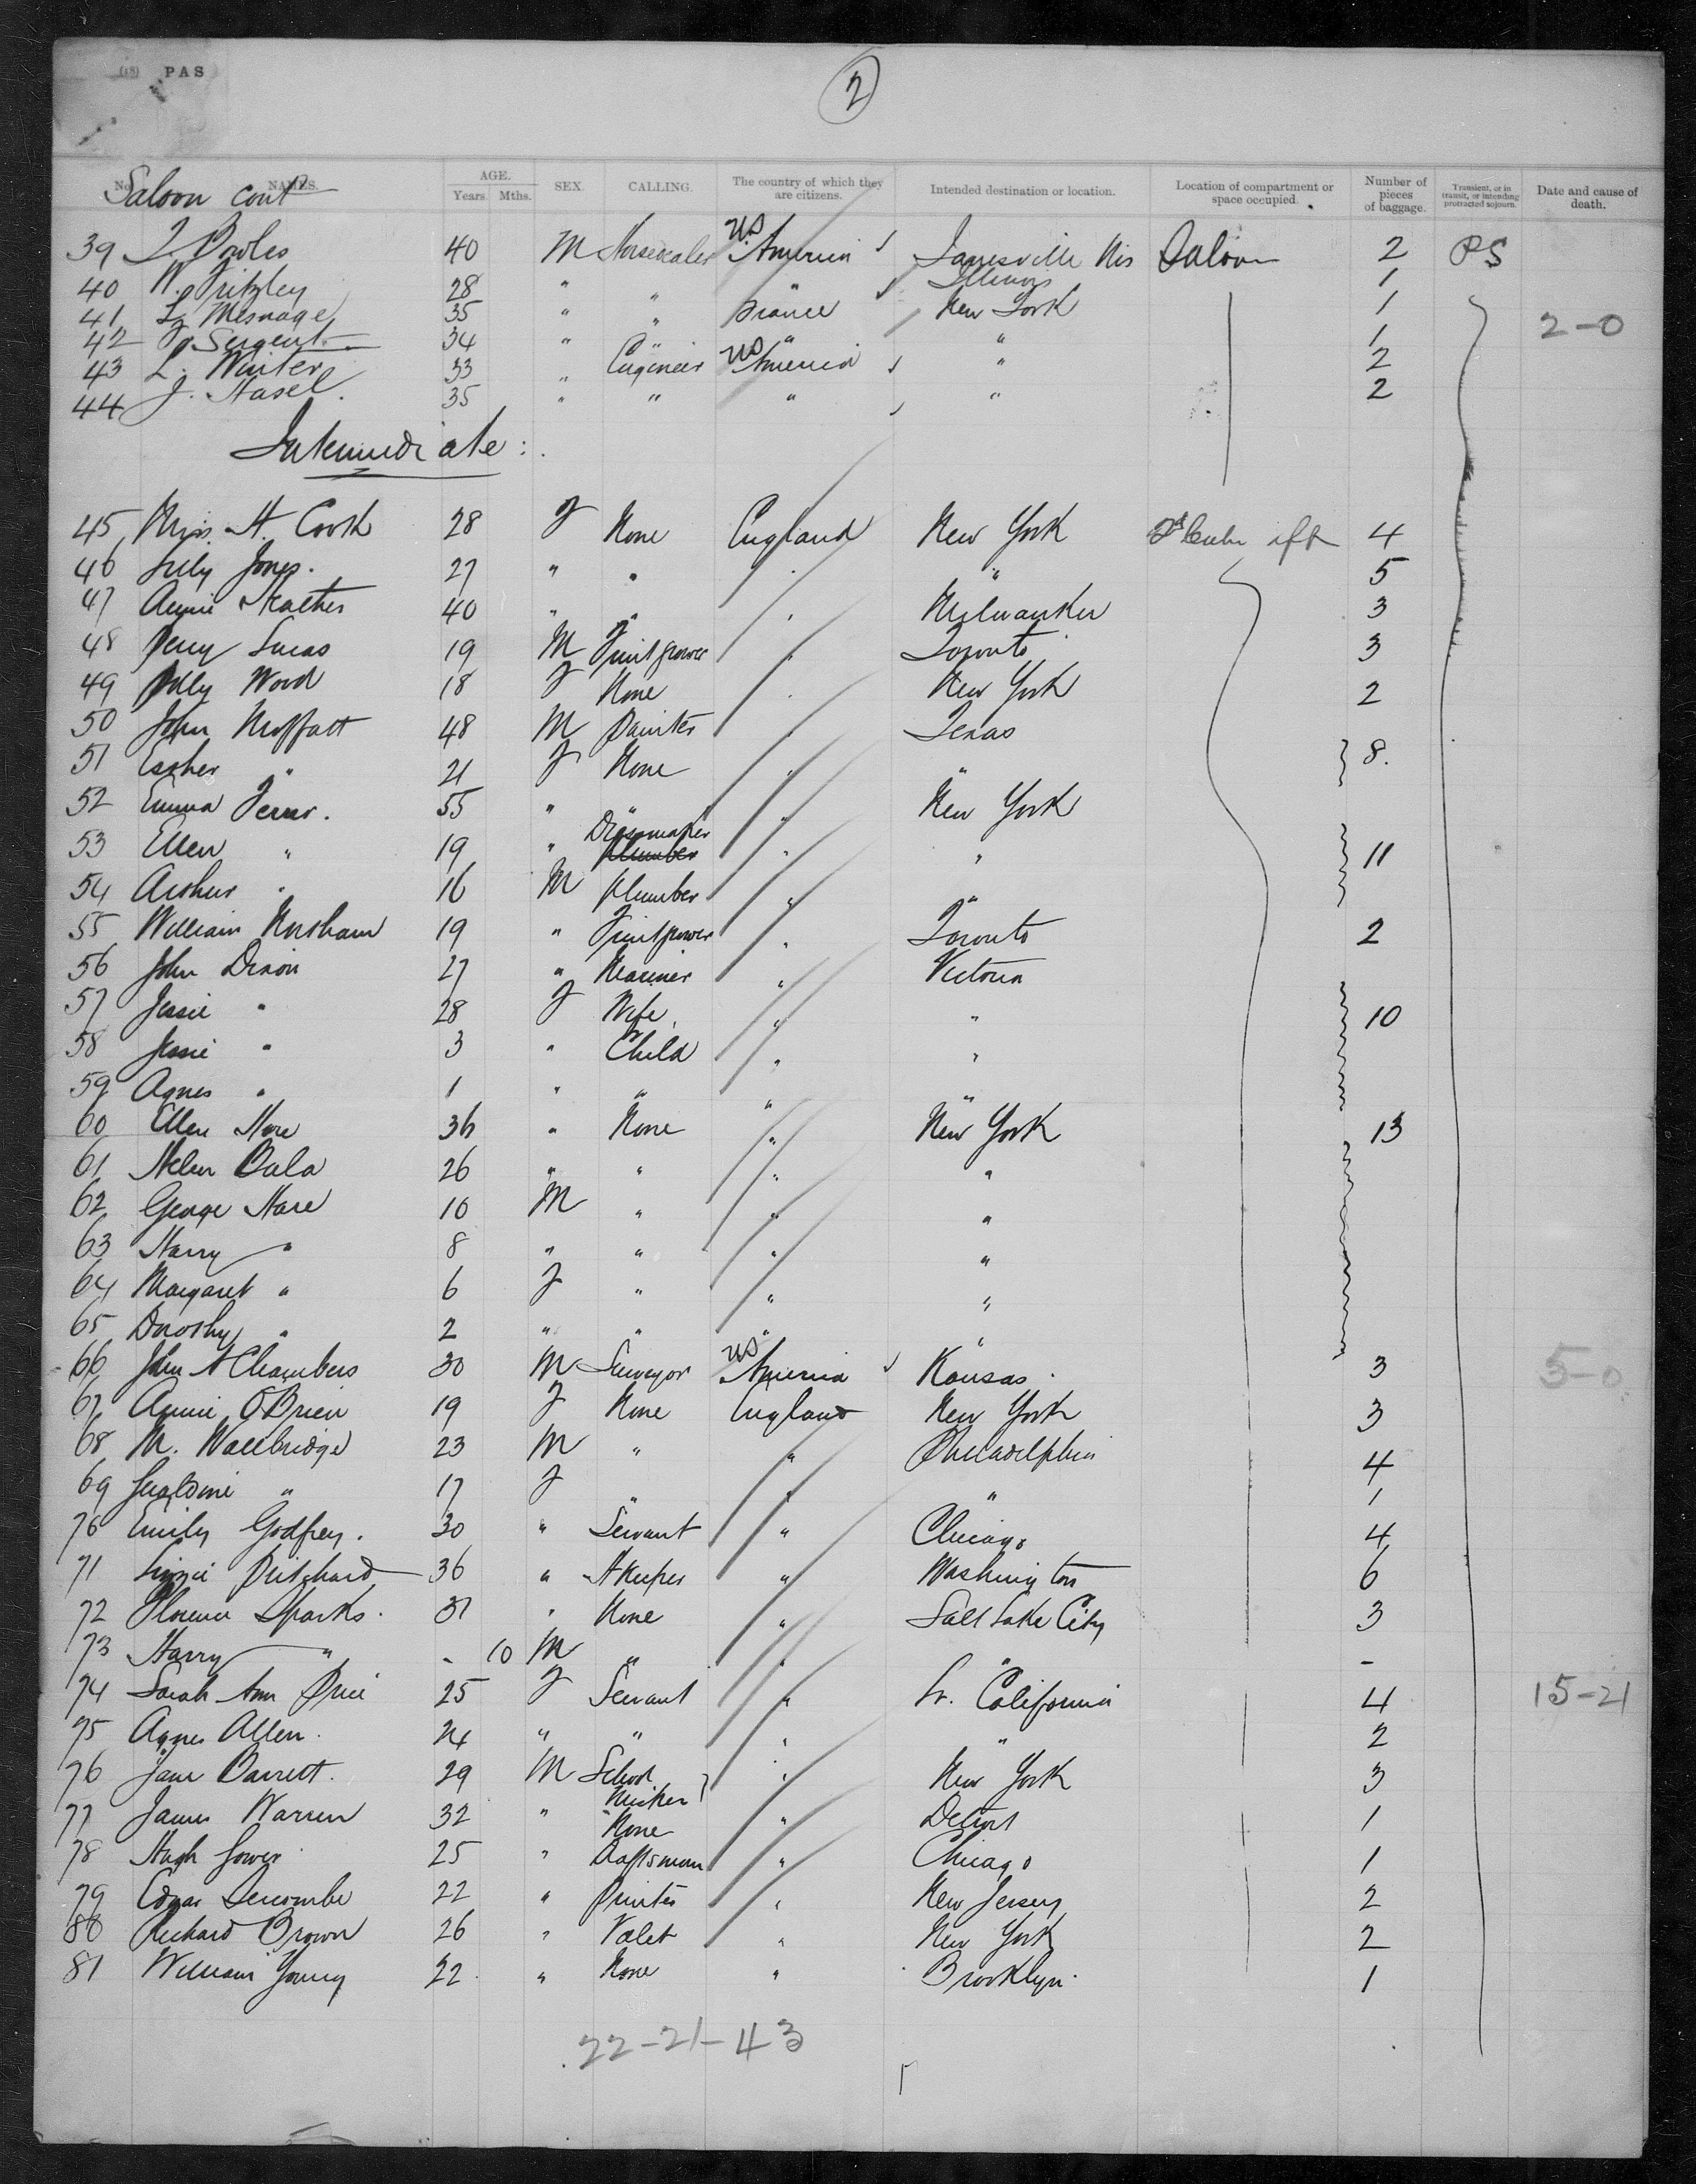 (18) PAS
2
No. NAMES. AGE. Years Mths. SEX. CALLING. The country of which they are citizens. Intended destination or location. Location of compartment or space occupied. Number of pieces of baggage. Transient, or in transit, or intending protracted sojourn. Date and cause of death.
Saloon cont
39 40 M Horsedealer US America Janesville Wis Saloon 2 PS
40 W. Pritzley 28 " " " Illinois 1
41 35 " " France New York 1 2-0
42 Sergent 34 " " " " 1
43 L. Winter 33 " Engineer US America " 2
44 J. Hasel. 35 " " " " 2
Intermediate:
45 Miss H. Cook 28 F None England New York 2d aft 4
46 Lily Jones. 27 " " " " 5
47 Annie 40 " " " Milwaukee 3
48 Percy Lucas 19 M Fruitgrower " Toronto 3
49 Polly Wood 18 F None " New York 2
50 John Moffatt 48 M Painter " Texas
51 Esther " 21 F None " " 8.
52 Emma 55 " " " New York
53 Ellen " 19 " Dressmaker plumber " " 11
54 Arthur " 16 M plumber " "
55 William 19 " Fruitgrower " Toronto 2
56 John Dixon 27 " Mariner " Victoria
57 Jessie " 28 F Wife " " 10
58 Jessie " 3 " Child " "
59 Agnes " 1 " " " "
60 Ellen Hare 36 " None " New York 13
61 Helen 26 " " " "
62 George Hare 10 M " " "
63 Harry " 8 " " " "
64 Margaret " 6 F " " "
65 Dorothy " 2 " " " "
66 John A Chambers 30 M Surveyor US America Kansas 3 5-0
67 Annie O'Brien 19 F None England New York 3
68 M. Wallbridge 23 M " " Philadelphia 4
69 Geraldine " 17 F " " " 1
70 Emily Godfrey. 30 " Servant " Chicago 4
71 Lizzie Pritchard 36 " HKeeper " Washington 6
72 Florence Sparks. 31 " None " Salt Lake City 3
73 Harry " - 10 M " " " -
74 Sarah Ann Price 25 F Servant " California 4 15-21
75 Agnes Allen. 24 " " " " 2
76 Jane Barrett. 29 M School " New York 3
77 James Warren 32 " None " Detroit 1
78 Hugh 25 " Draftsman " Chicago 1
79 Edgar 22 " Printer " New Jersey 2
80 Richard Brown 26 " Valet " New York 2
81 William Young 22 " None " Brooklyn. 1
22-21-43